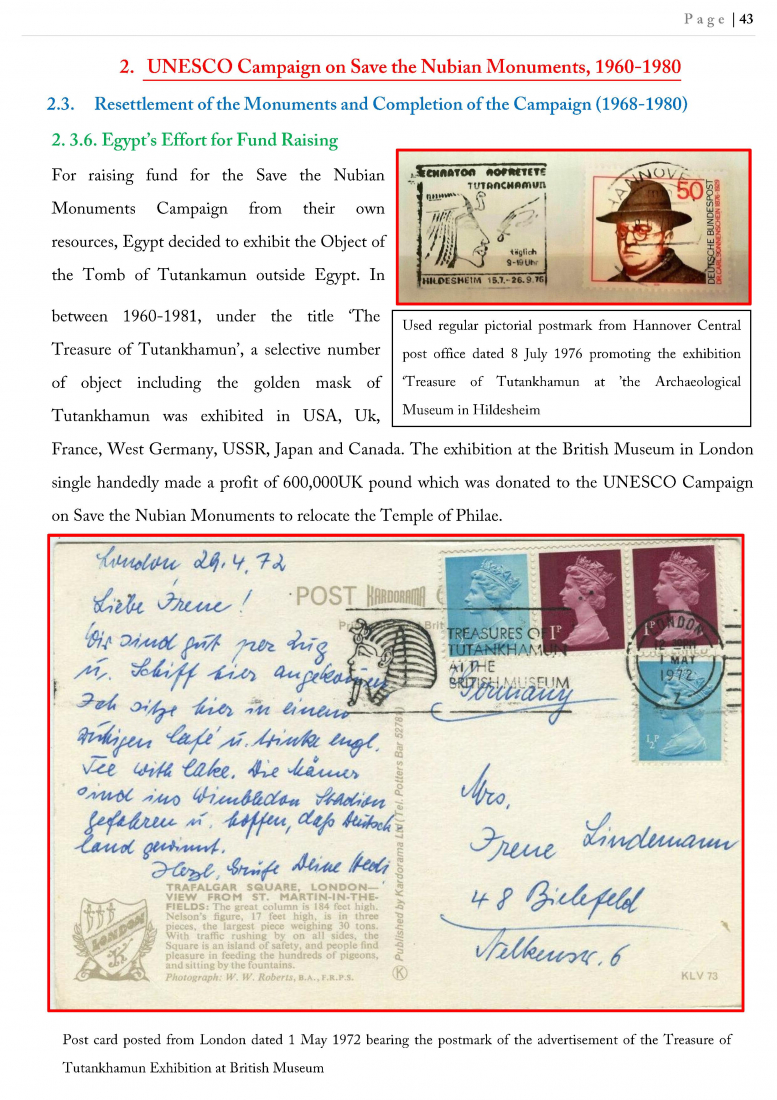 Page | 43
2. UNESCO Campaign on Save the Nubian Monuments, 1960-1980
2.3. Resettlement of the Monuments and Completion of the Campaign (1968-1980)
2. 3.6. Egypt's Effort for Fund Raising
For raising fund for the Save the Nubian
Monuments Campaign from their own
resources, Egypt decided to exhibit the Object of
the Tomb of Tutankamun outside Egypt. In
between 1960-1981, under the title 'The
Treasure of Tutankhamun', a selective number
of object including the golden mask of
Tutankhamun was exhibited in USA, Uk,
France, West Germany, USSR, Japan and Canada. The exhibition at the British Museum in London
single handedly made a profit of 600,000UK pound which was donated to the UNESCO Campaign
on Save the Nubian Monuments to relocate the Temple of Philae.
ECHNATON NOFRETETE
TUTANCHAMUN
täglich
9-19 Uhr
HILDESHEIM 15.7.-26.9.76
HANNOVER
50
DEUTSCHE BUNDESPOST
DR. CARL SONNENSCHEIN 1876-1929
Used regular pictorial postmark from Hannover Central
post office dated 8 July 1976 promoting the exhibition
'Treasure of Tutankhamun at 'the Archaeological
Museum in Hildesheim
London 29.4.72
Liebe Irene!
Wir sind gut per Zug
u. Schiff hier angekommen
Ich sitze hier in einem
ruhigen Café u. trinke engl.
Tee with Cake. Die Männer
sind ins Wimbledon Stadion
gefahren u. hoffen, daß Deutsch
land gewinnt.
Herzl. Grüße Deine Hedi
POST KARDORAMA
TREASURES OF
TUTANKHAMUN
AT THE
BRITISH MUSEUM
1P
1P
½P
LONDON
1 MAY
1972
Z
Germany
Mrs.
Irene Lindemann
48 Bielefeld
Nelkenstr. 6
Published by Kardorama Ltd (Tel. Potters Bar 5278)
LONDON
TRAFALGAR SQUARE, LONDON—
VIEW FROM ST. MARTIN-IN-THE-
FIELDS: The great column is 184 feet high.
Nelson's figure, 17 feet high, is in three
pieces, the largest piece weighing 30 tons.
With traffic rushing by on all sides, the
Square is an island of safety, and people find
pleasure in feeding the hundreds of pigeons,
and sitting by the fountains.
Photograph: W. W. Roberts, B.A., F.R.P.S.
K
KLV 73
Post card posted from London dated 1 May 1972 bearing the postmark of the advertisement of the Treasure of
Tutankhamun Exhibition at British Museum